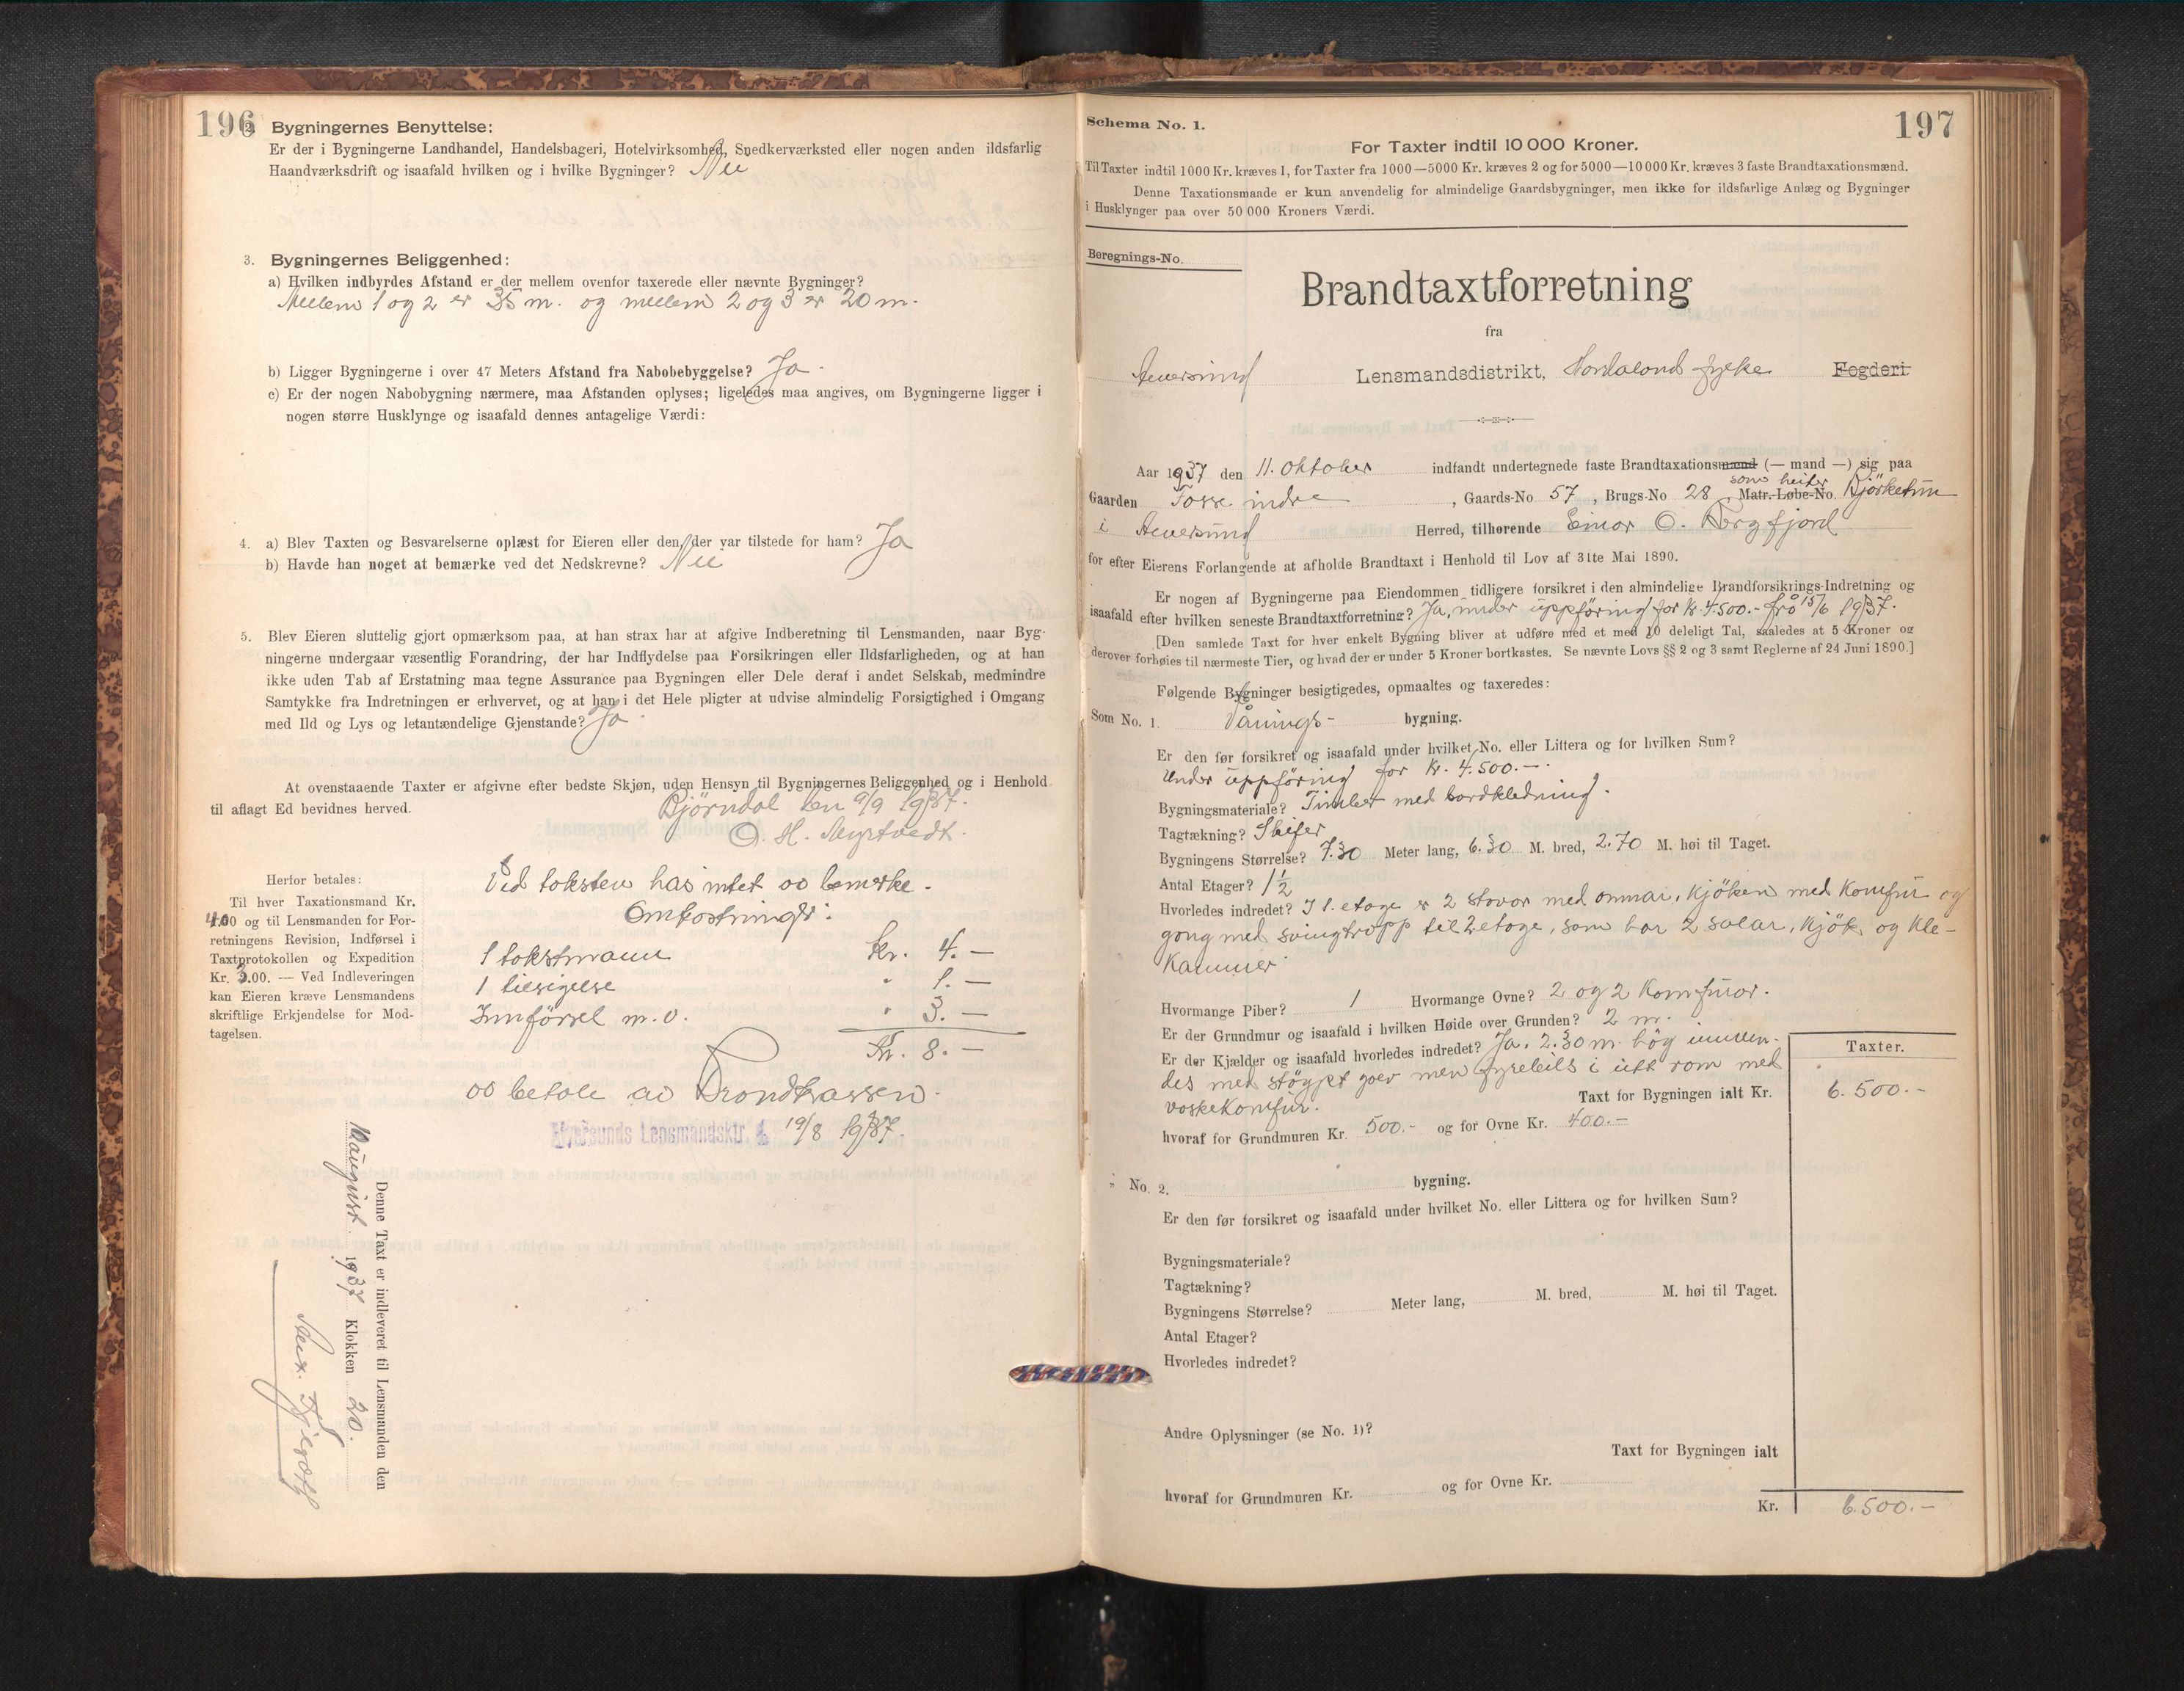 196
2. Bygningernes Benyttelse:
Er der i Bygningerne Landhandel, Handelsbageri, Hotelvirksomhed, Snedkerværksted eller nogen anden ildsfarlig
Haandværksdrift og isaafald hvilken og i hvilke Bygninger? Nei
3. Bygningernes Beliggenhed:
a) Hvilken indbyrdes Afstand er der mellem ovenfor taxerede eller nævnte Bygninger?
Mellem 1 og 2 er 35 m. og mellem 2 og 3 er 20 m.
b) Ligger Bygningerne i over 47 Meters Afstand fra Nabobebyggelse? Ja.
c) Er der nogen Nabobygning nærmere, maa Afstanden oplyses; ligeledes maa angives, om Bygningerne ligger i
nogen større Husklynge og isaafald dennes antagelige Værdi:
4. a) Blev Taxten og Besvarelserne oplæst for Eieren eller den, der var tilstede for ham? Ja
b) Havde han noget at bemærke ved det Nedskrevne? Nei
5. Blev Eieren sluttelig gjort opmærksom paa, at han strax har at afgive Indberetning til Lensmanden, naar Byg-
ningerne undergaar væsentlig Forandring, der har Indflydelse paa Forsikringen eller Ildsfarligheden, og at han
ikke uden Tab af Erstatning maa tegne Assurance paa Bygningen eller Dele deraf i andet Selskab, medmindre
Samtykke fra Indretningen er erhvervet, og at han i det Hele pligter at udvise almindelig Forsigtighed i Omgang
med Ild og Lys og letantændelige Gjenstande? Ja
At ovenstaaende Taxter er afgivne efter bedste Skjøn, uden Hensyn til Bygningernes Beliggenhed og i Henhold
til aflagt Ed bevidnes herved.
Bjørndal den 9/9 1937.
O. H. Myrtvedt.
Herfor betales:
Til hver Taxationsmand Kr.
4.00 og til Lensmanden for For-
retningens Revision, Indførsel i
Taxtprotokollen og Expedition
Kr. 3.00. — Ved Indleveringen
kan Eieren kræve Lensmandens
skriftlige Erkjendelse for Mod-
tagelsen.
Ved taksten has intet å bemerke.
Omkostninger:
1 takstmann Kr. 4.—
1 tilsigelse " 1.—
Innförsel m.v. " 3.—
Kr. 8.—
å betale av Brandkassen.
Lensmandsktr. 19/8 1937.
Denne Taxt er indleveret til Lensmanden den
10 august 1937 Klokken 20.
197
Schema No. 1.
For Taxter indtil 10 000 Kroner.
Til Taxter indtil 1000 Kr. kræves 1, for Taxter fra 1000—5000 Kr. kræves 2 og for 5000—10 000 Kr. kræves 3 faste Brandtaxationsmænd.
Denne Taxationsmaade er kun anvendelig for almindelige Gaardsbygninger, men ikke for ildsfarlige Anlæg og Bygninger
i Husklynger paa over 50 000 Kroners Værdi.
Beregnings-No.
Brandtaxtforretning
fra
Alversund Lensmandsdistrikt, Hordaland fylke Fogderi.
Aar 1937 den 11. oktober indfandt undertegnede faste Brandtaxationsmænd (— mand —) sig paa
Gaarden Fosse indre, Gaards-No 57, Brugs-No 28, som heiter Matr.-Løbe-No. Bjørketun
i Alversund Herred, tilhørende Einar O. Bergfjord
for efter Eierens Forlangende at afholde Brandtaxt i Henhold til Lov af 31te Mai 1890.
Er nogen af Bygningerne paa Eiendommen tidligere forsikret i den almindelige Brandforsikrings-Indretning og
isaafald efter hvilken seneste Brandtaxtforretning? Ja, under uppföring for kr. 4500.- frå 15/6 1937.
[Den samlede Taxt for hver enkelt Bygning bliver at udføre med et med 10 deleligt Tal, saaledes at 5 Kroner og
derover forhøies til nærmeste Tier, og hvad der er under 5 Kroner bortkastes. Se nævnte Lovs §§ 2 og 3 samt Reglerne af 24 Juni 1890.]
Følgende Bygninger besigtigedes, opmaaltes og taxeredes:
Som No. 1. Vånings- bygning.
Er den før forsikret og isaafald under hvilket No. eller Littera og for hvilken Sum?
Under uppföring for kr. 4.500.—.
Bygningsmateriale? Timber med bordkledning.
Tagtækning? Skifer
Bygningens Størrelse? 7.30 Meter lang, 6.30 M. bred, 2.70 M. høi til Taget.
Antal Etager? 1½
Hvorledes indredet? I 1. etage er 2 stover med ommar, kjöken med komfur og
gang med svingtropp til 2 etage, som har 2 salar, kjök. og kle-
kammer
Hvormange Piber? 1 Hvormange Ovne? 2 og 2 komfurar.
Er der Grundmur og isaafald i hvilken Høide over Grunden? 2 m.
Er der Kjælder og isaafald hvorledes indredet? Ja. 2.30 m. hög innven-
des med stöypt golv men fyrebils i eitt rom med
vaskekomfur.
Taxt for Bygningen ialt Kr.
Taxter.
6.500.-
hvoraf for Grundmuren Kr. 500.- og for Ovne Kr. 400.—
" No. 2. bygning.
Er den før forsikret og isaafald under hvilket No. eller Littera og for hvilken Sum?
Bygningsmateriale?
Tagtækning?
Bygningens Størrelse? Meter lang, M. bred, M. høi til Taget.
Antal Etager?
Hvorledes indredet?
Andre Oplysninger (se No. 1)?
Taxt for Bygningen ialt
hvoraf for Grundmuren Kr. og for Ovne Kr.
Kr. 6.500.-